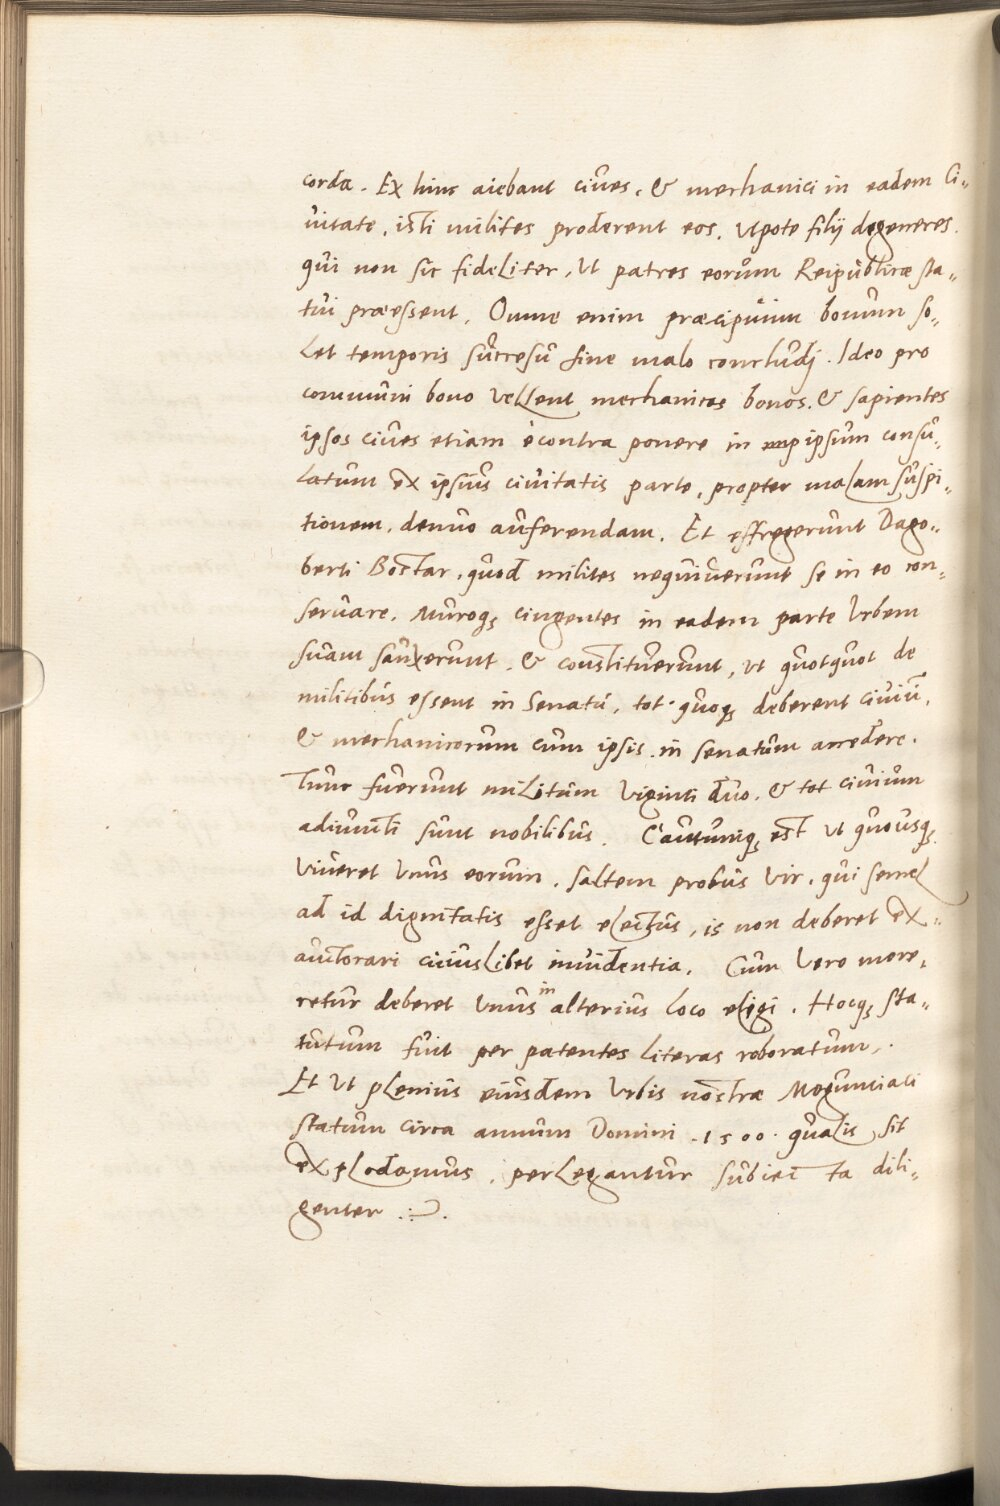 corda. Ex hinc aiebant ciues, & mechanici in eadem Ci„
uitate, isti milites proderent eos, Vtpote filij degeneres.
qui non sic fideliter, Vt patres eorum Reipublicæ sta„
tui præessent, Omne enim præcipuum bonum so„
let temporis successu sine malo concludj. Ideo pro
communi bono Vellent mechanicos bonos, & sapientes
ipsos ciues etiam è contra ponere in ipsum consu„
latum ex ipsius ciuitatis parte, propter malam suspi„
tionem, denuo auferendam. Et effregerunt Dago„
berti Boctar, quod milites nequiuerunt se in eo con„
seruare. Muroq; cingentes in eadem parte Vrbem
suam sanxerunt, & constituerunt, vt quotquot de
militibus essent in Senatu, tot quoq; deberent ciuiū,
& mechanicorum cum ipsis in senatum accedere.
Tunc fuerunt militum Viginti duo, & tot ciuium
adiuncti sunt nobilibus. Cautumq; est Vt quousq;
Viueret Vnus eorum, saltem probus Vir, qui semel
ad id dignitatis esset electus, is non deberet ex„
auctorari cuiuslibet inuidentia. Cum Vero more„
retur deberet Vnus in alterius loco eligi. Hocq; sta„
tutum fuit per patentes literas roboratum,.
Et Vt plenius eiusdem Vrbis nostræ Moguntiaci
statum circa annum Domini .1500. qualis sit
explodamus, perlegantur subiecta dili„
genter .:~.